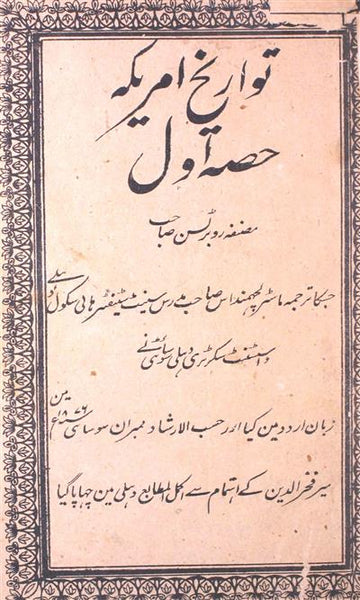 تواریخ امریکہ
حصہ اول
مصنفہ روبرٹسن صاحب
جسکا ترجمہ ماسٹر لچھمنداس صاحب مدرس سینٹ سٹیفنز ہائی سکول دہلی
و اسسٹنٹ سکرٹری دہلی سوسائٹی نے
زبان اردو مین کیا اور حسب الارشاد ممبران سوسائٹی ۱۸۷۶ع مین
میر فخر الدین کے اہتمام سے اکمل المطابع دہلی مین چھاپا گیا